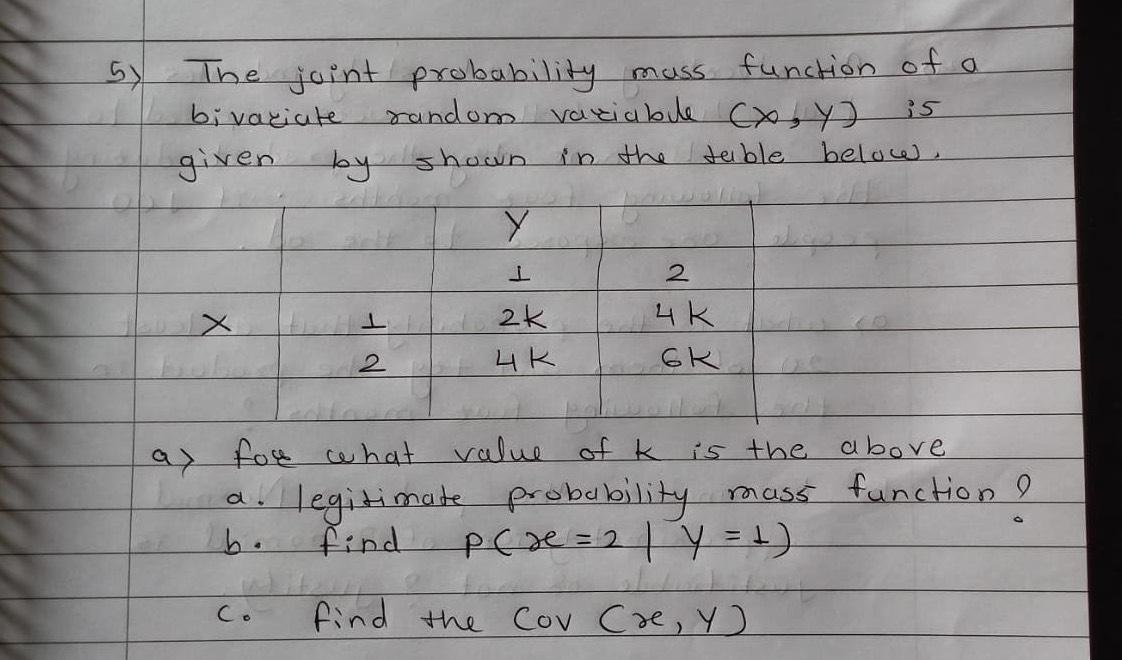 5) The joint probability mass function of a
bivariate random variable (x, y) is
given by shown in the table below.
Y
1 2
X 1 2k 4k
2 4k 6k
a) for what value of k is the above
a. legitimate probability mass function ?
b. find p(x = 2 | y = 1)
c. find the Cov (x, y)